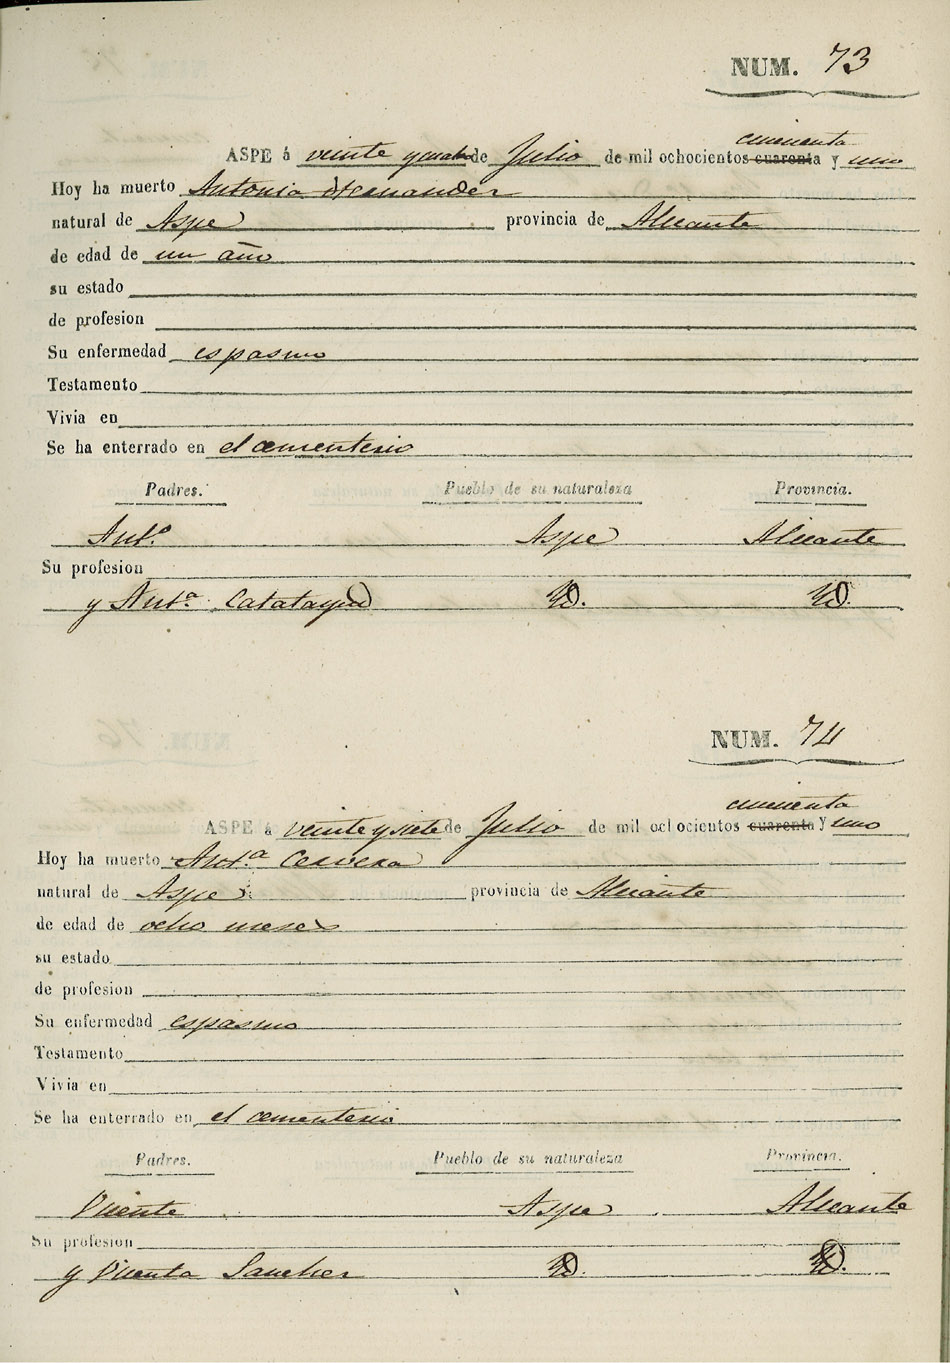 NUM. 73
cincuenta
ASPE á veinte y cuatro de Julio de mil ochocientos cuarenta y uno
Hoy ha muerto Antonia Hernandez
natural de Aspe provincia de Alicante
de edad de un año
su estado
de profesion
Su enfermedad espasmo
Testamento
Vivia en
Se ha enterrado en el cementerio
Padres. Pueblo de su naturaleza Provincia.
Antº Aspe Alicante
Su profesion
y Antª Calatayud YD. YD.
NUM. 74
cincuenta
ASPE á veinte y siete de Julio de mil ochocientos cuarenta y uno
Hoy ha muerto Antª Cervera
natural de Aspe provincia de Alicante
de edad de ocho meses
su estado
de profesion
Su enfermedad espasmo
Testamento
Vivia en
Se ha enterrado en el cementerio
Padres. Pueblo de su naturaleza Provincia.
Vicente Aspe Alicante
Su profesion
y Vicenta Sanchez YD. YD.